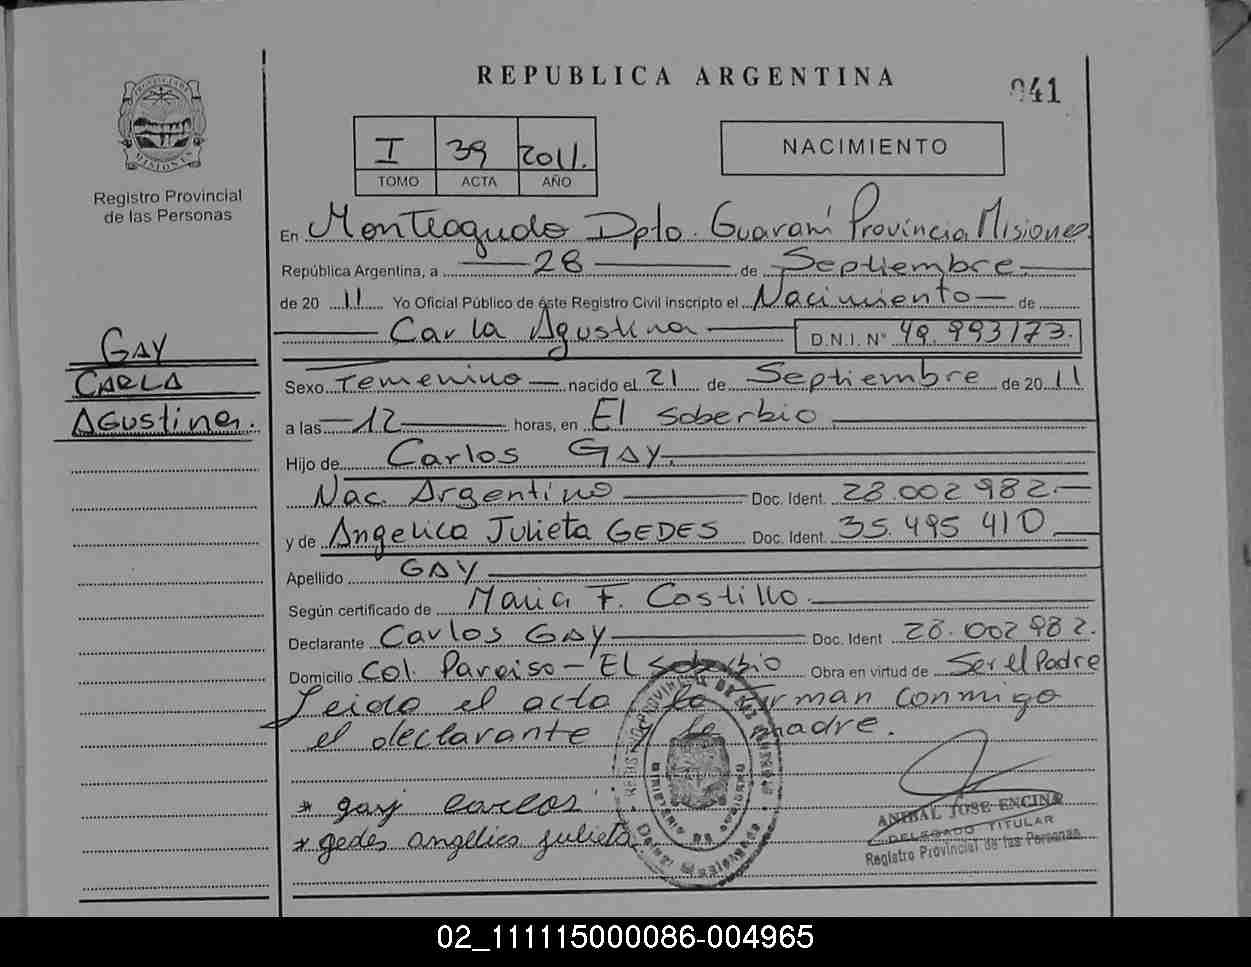 REPUBLICA ARGENTINA
041
I 39 2011.
TOMO ACTA AÑO
NACIMIENTO
Registro Provincial
de las Personas
En Monteagudo Dpto. Guaraní Provincia Misiones
República Argentina, a 28 de Septiembre.
de 20 11 Yo Oficial Público de éste Registro Civil inscripto el Nacimiento de
Carla Agustina D.N.I. N° 49.993173.
GAY
CARLA
AGUStina.
Sexo Femenino nacido el 21 de Septiembre de 20 11
a las 12 horas, en El Soberbio
Hijo de Carlos GAY.
Nac. Argentino Doc. Ident. 28.002982.
y de Angelica Julieta GEDES Doc. Ident. 35.495 410
Apellido GAY
Según certificado de Maria F. Costillo.
Declarante Carlos GAY Doc. Ident 28.002982.
Domicilio Col. Paraiso - El Soberbio Obra en virtud de Ser el Padre
Leida el acta la firman conmigo
el declarante y la madre.
* gay carlos
* gedes angelica julieta
ANIBAL JOSE ENCINA
DELEGADO TITULAR
Registro Provincial de las Personas
02_111115000086-004965